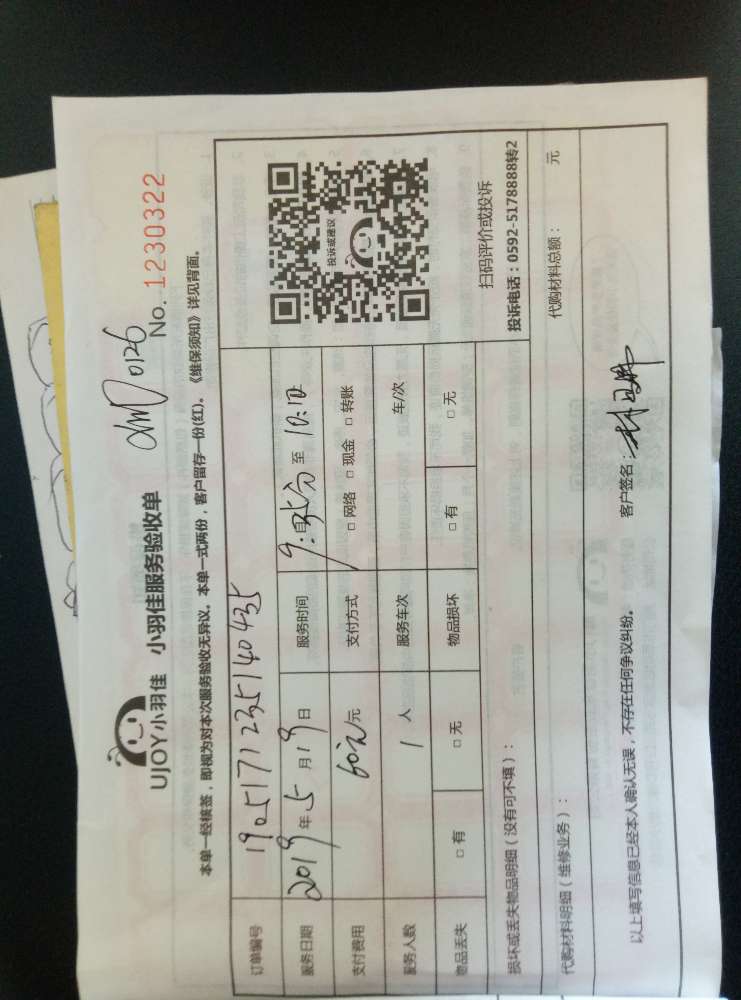 UJOY小羽佳 小羽佳服务验收单
0126
No. 1230322
本单一经核签，即视为对本次服务验收无异议。本单一式两份，客户留存一份(红)。《维保须知》详见背面。
订单编号 190517123514 0435
服务日期 2019年5月19日 服务时间 至 10:10
支付费用 60元/元 支付方式 □ 网络 □ 现金 □ 转账
服务人数 1 人 服务车次 车/次
物品丢失 □ 有 □ 无 物品损坏 □ 有 □ 无
投诉或建议
扫码评价或投诉
投诉电话：0592-5178888转2
损坏或丢失物品明细（没有可不填）：
代购材料明细（维修业务）： 代购材料总额： 元
以上填写信息已经本人确认无误，不存在任何争议纠纷。 客户签名：